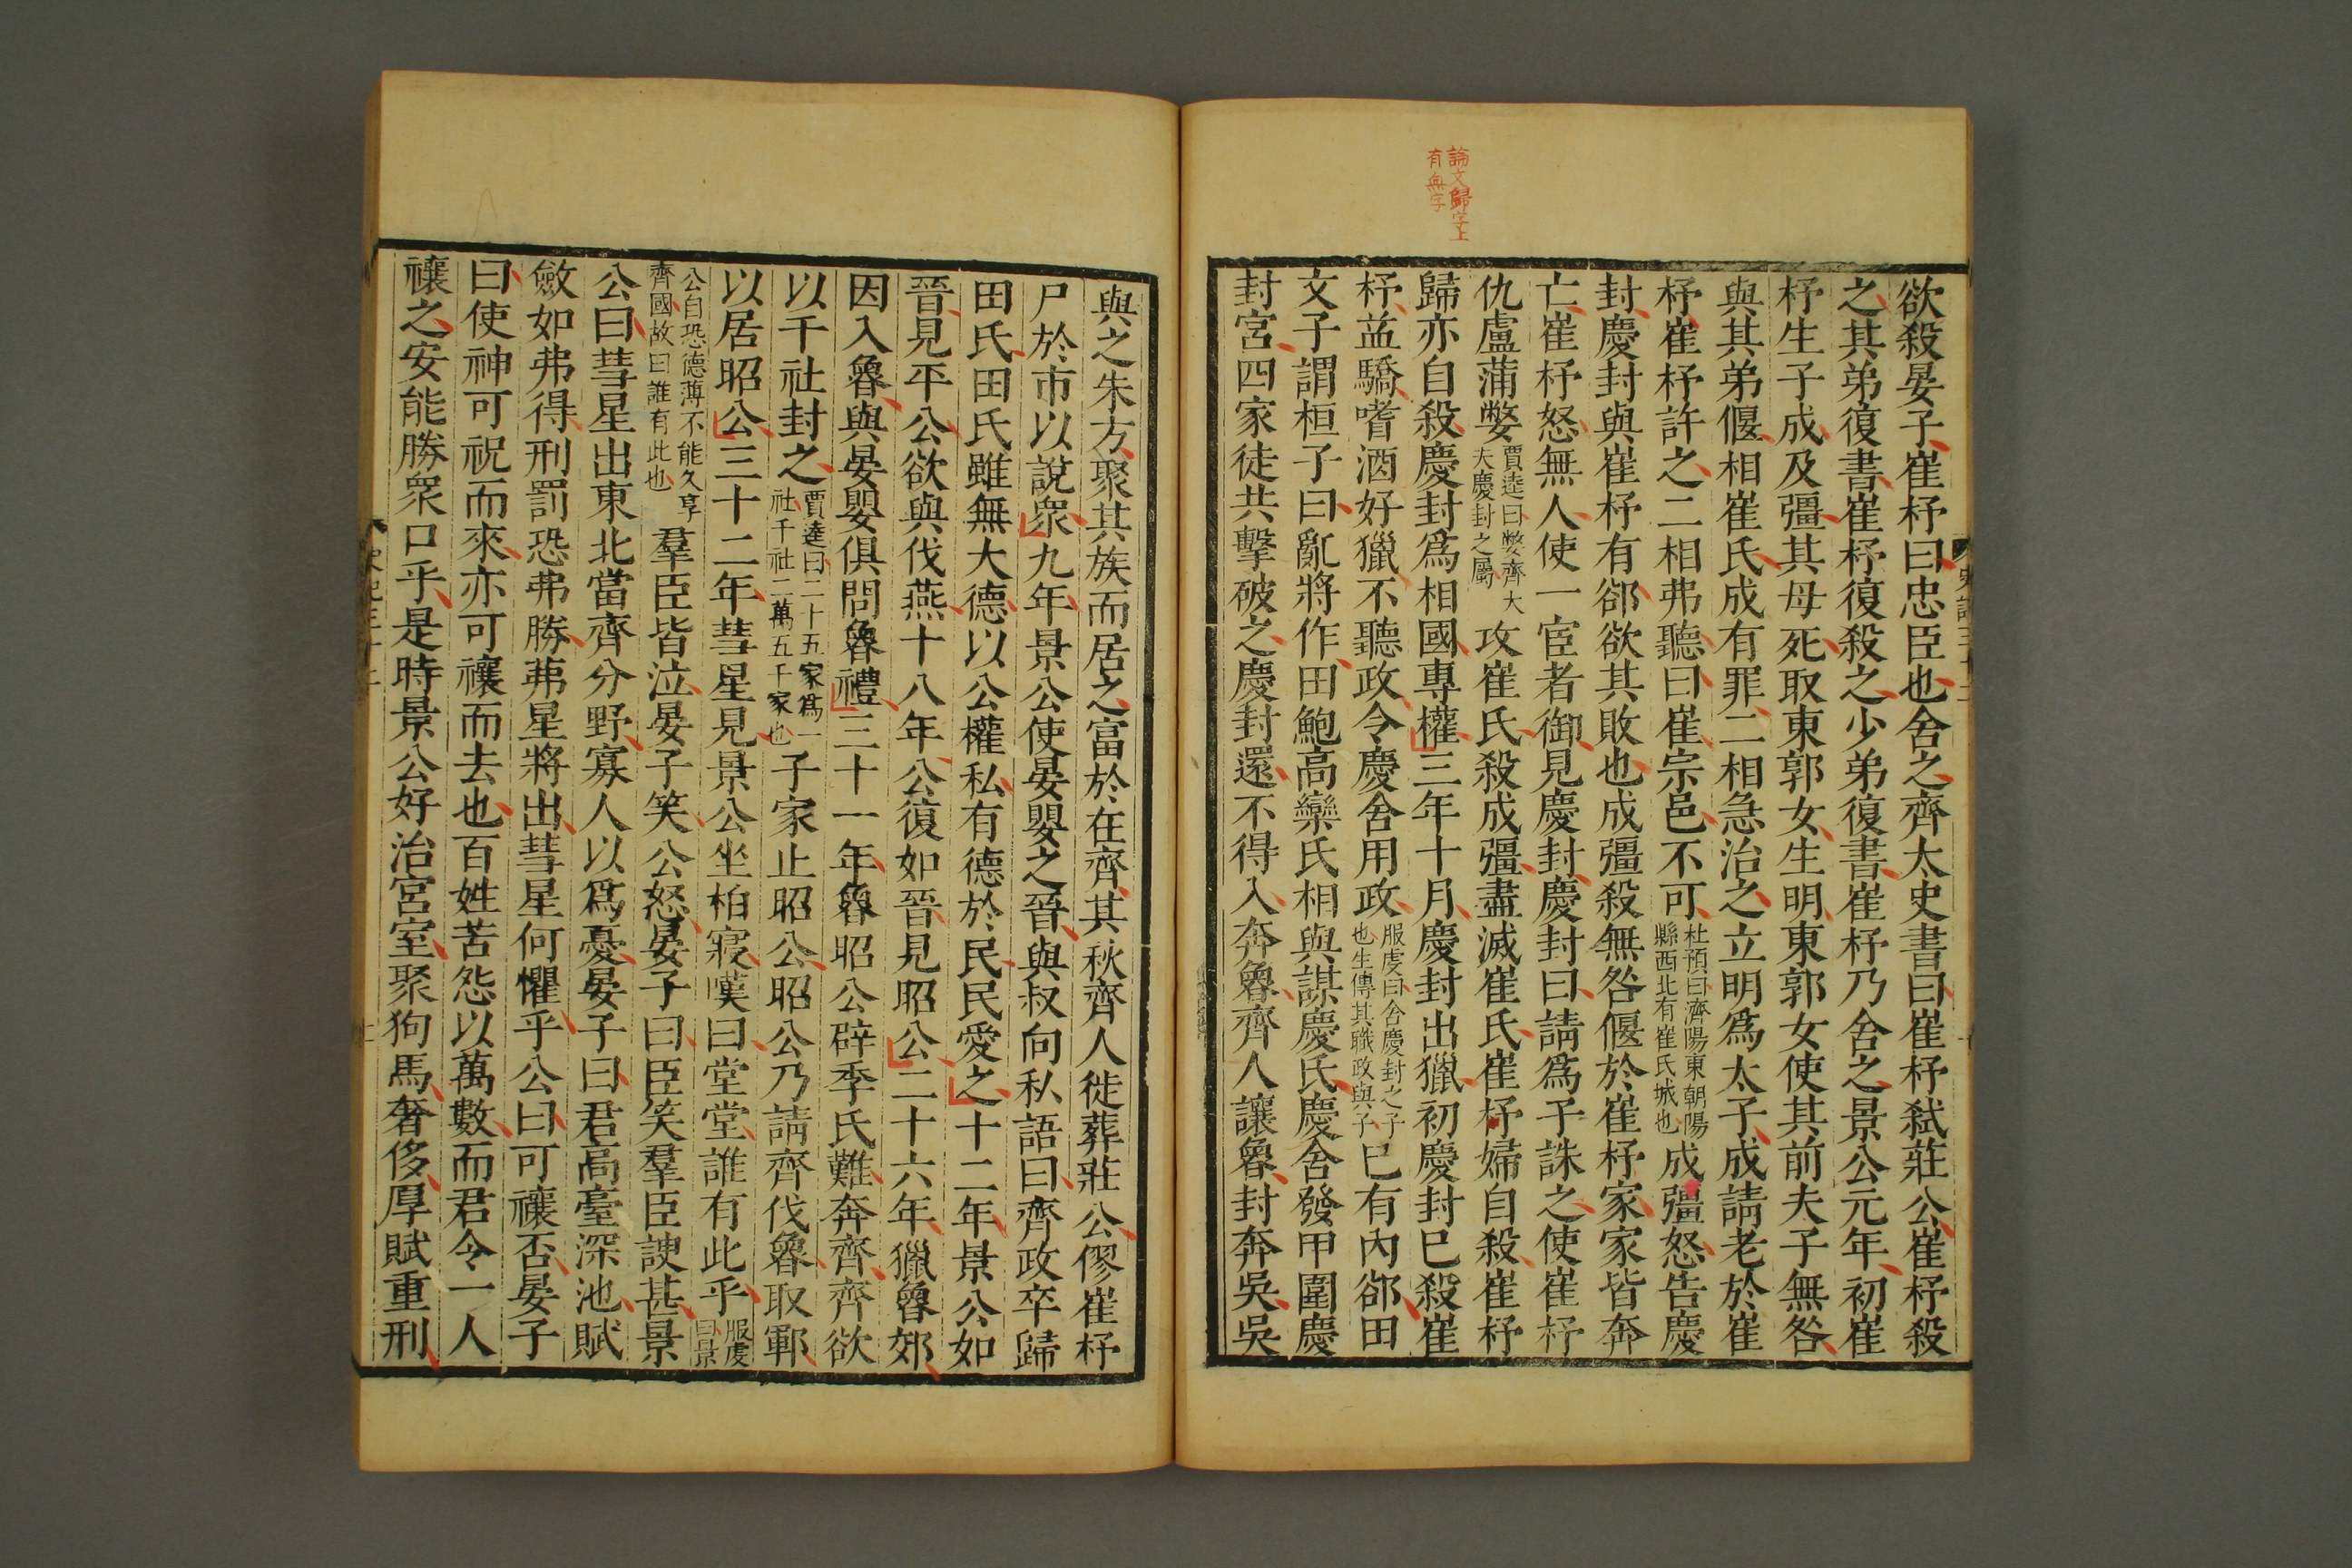 論文歸字上
有無字
欲殺晏子崔杼曰忠臣也舍之齊太史書曰崔杼弑莊公崔杼殺
之其弟復書崔杼復殺之少弟復書崔杼乃舍之景公元年初崔
杼生子成及彊其母死取東郭女生明東郭女使其前夫子無咎
與其弟偃相崔氏成有罪二相急治之立明爲太子成請老於崔
杼崔杼許之二相弗聽曰崔宗邑不可
杜預曰濟陽東朝陽
縣西北有崔氏城也
成彊怒告慶
封慶封與崔杼有郤欲其敗也成彊殺無咎偃於崔杼家家皆奔
亡崔杼怒無人使一宦者御見慶封慶封曰請爲子誅之使崔杼
仇盧蒲嫳
賈逵曰嫳齊大
夫慶封之屬
攻崔氏殺成彊盡滅崔氏崔杼婦自殺崔杼
歸亦自殺慶封爲相國專權三年十月慶封出獵初慶封已殺崔
杼益驕嗜酒好獵不聽政令慶舍用政
服虔曰舍慶封之子
也生傳其職政與子
已有內郤田
文子謂桓子曰亂將作田鮑高欒氏相與謀慶氏慶舍發甲圍慶
封宮四家徒共擊破之慶封還不得入奔魯齊人讓魯封奔吳吳
與之朱方聚其族而居之富於在齊其秋齊人徙葬莊公僇崔杼
尸於市以說衆九年景公使晏嬰之晉與叔向私語曰齊政卒歸
田氏田氏雖無大德以公權私有德於民民愛之十二年景公如
晉見平公欲與伐燕十八年公復如晉見昭公二十六年獵魯郊
因入魯與晏嬰俱問魯禮三十一年魯昭公辟季氏難奔齊齊欲
以千社封之
賈逵曰二十五家爲一
社千社二萬五千家也
子家止昭公昭公乃請齊伐魯取鄆
以居昭公三十二年彗星見景公坐柏寢嘆曰堂堂誰有此乎
服虔
曰景
公自恐德薄不能久享
齊國故曰誰有此也
羣臣皆泣晏子笑公怒晏子曰臣笑羣臣諛甚景
公曰彗星出東北當齊分野寡人以爲憂晏子曰君高臺深池賦
斂如弗得刑罰恐弗勝茀星將出彗星何懼乎公曰可禳否晏子
曰使神可祝而來亦可禳而去也百姓苦怨以萬數而君令一人
禳之安能勝衆口乎是時景公好治宮室聚狗馬奢侈厚賦重刑